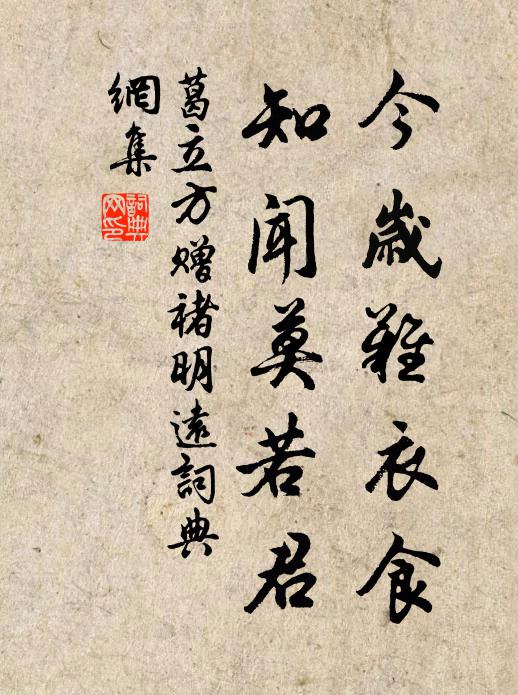 今歲難衣食
知聞莫若君
葛立方贈褚明遠詞典
網集
詞典
网印